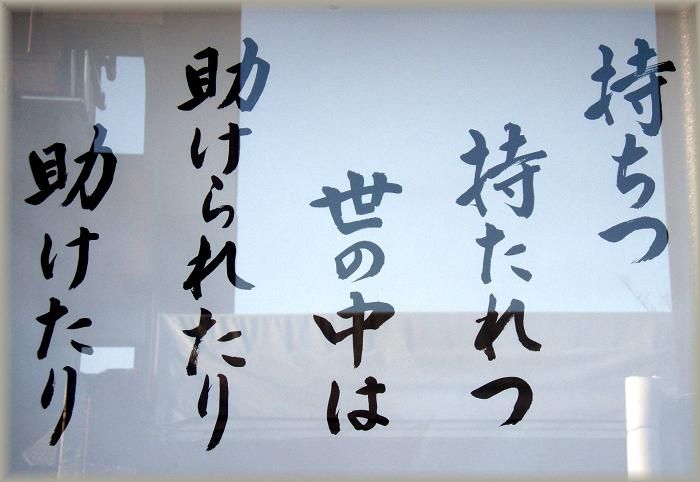 持ちつ
持たれつ
世の中は
助けられたり
助けたり